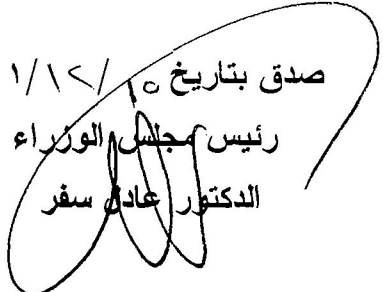 صدق بتاريخ ١٥/١٢/١
رئيس مجلس الوزراء
الدكتور عادل سفر